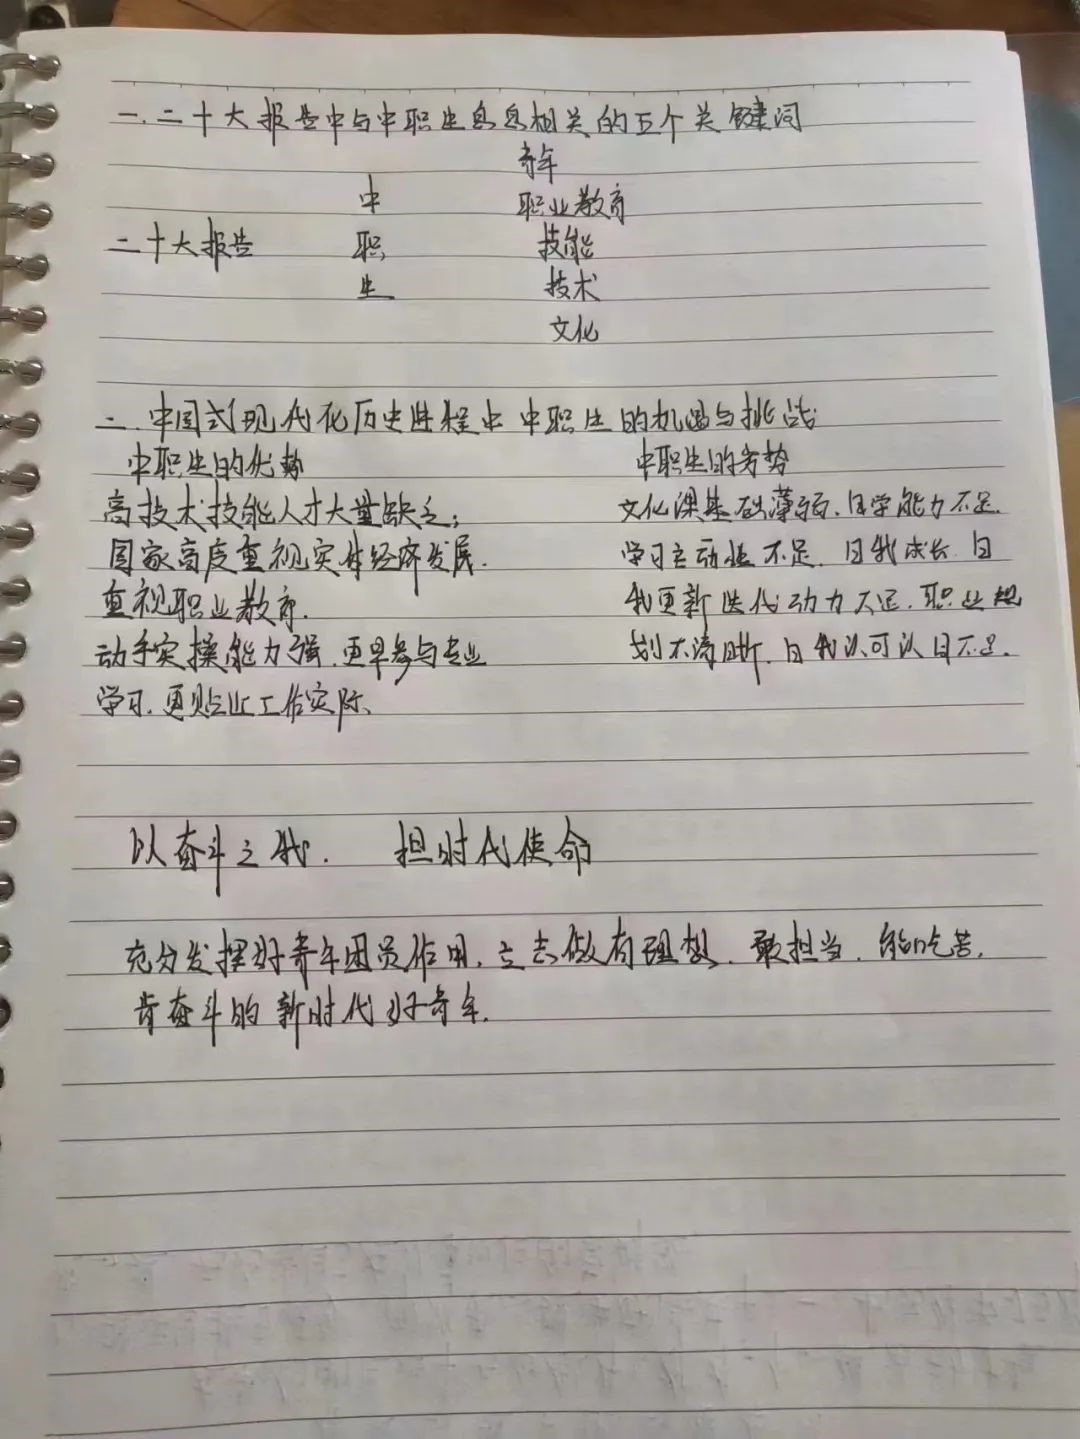 一.二十大报告中与中职生息息相关的五个关键词
青年
中 职业教育
二十大报告 职 技能
生 技术
文化
二.中国式现代化历史进程中中职生的机遇与挑战
中职生的优势 中职生的劣势
高技术技能人才大量缺乏; 文化课基础薄弱.自学能力不足.
国家高度重视实体经济发展. 学习主动性不足.自我成长.自
重视职业教育. 我更新迭代动力不足.职业规
动手实操能力强.更早参与专业 划不清晰.自我认可认同不足.
学习.更贴近工作实际、
以奋斗之我. 担时代使命
充分发挥好青年团员作用.立志做有理想.敢担当.能吃苦.
肯奋斗的新时代好青年.